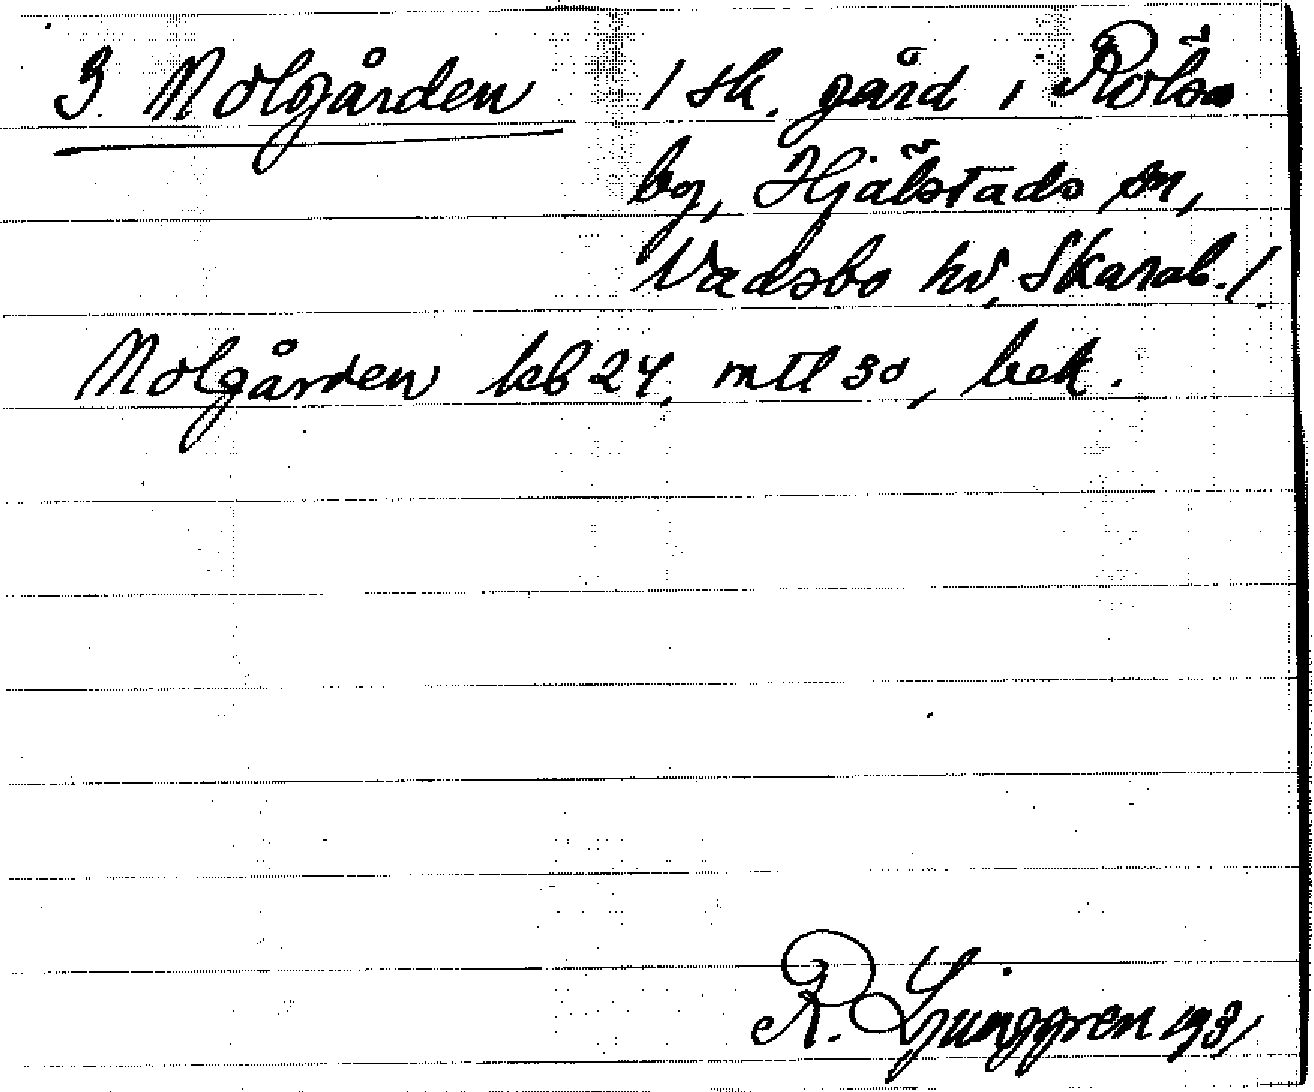 3. Nolgården / sk. gård i Rölsa
by, Hjälstads sn,
Vadsbo hd, Skarab. /.
Nolgården kb 24, mtl 30, bek.
R. Ljunggren 1931